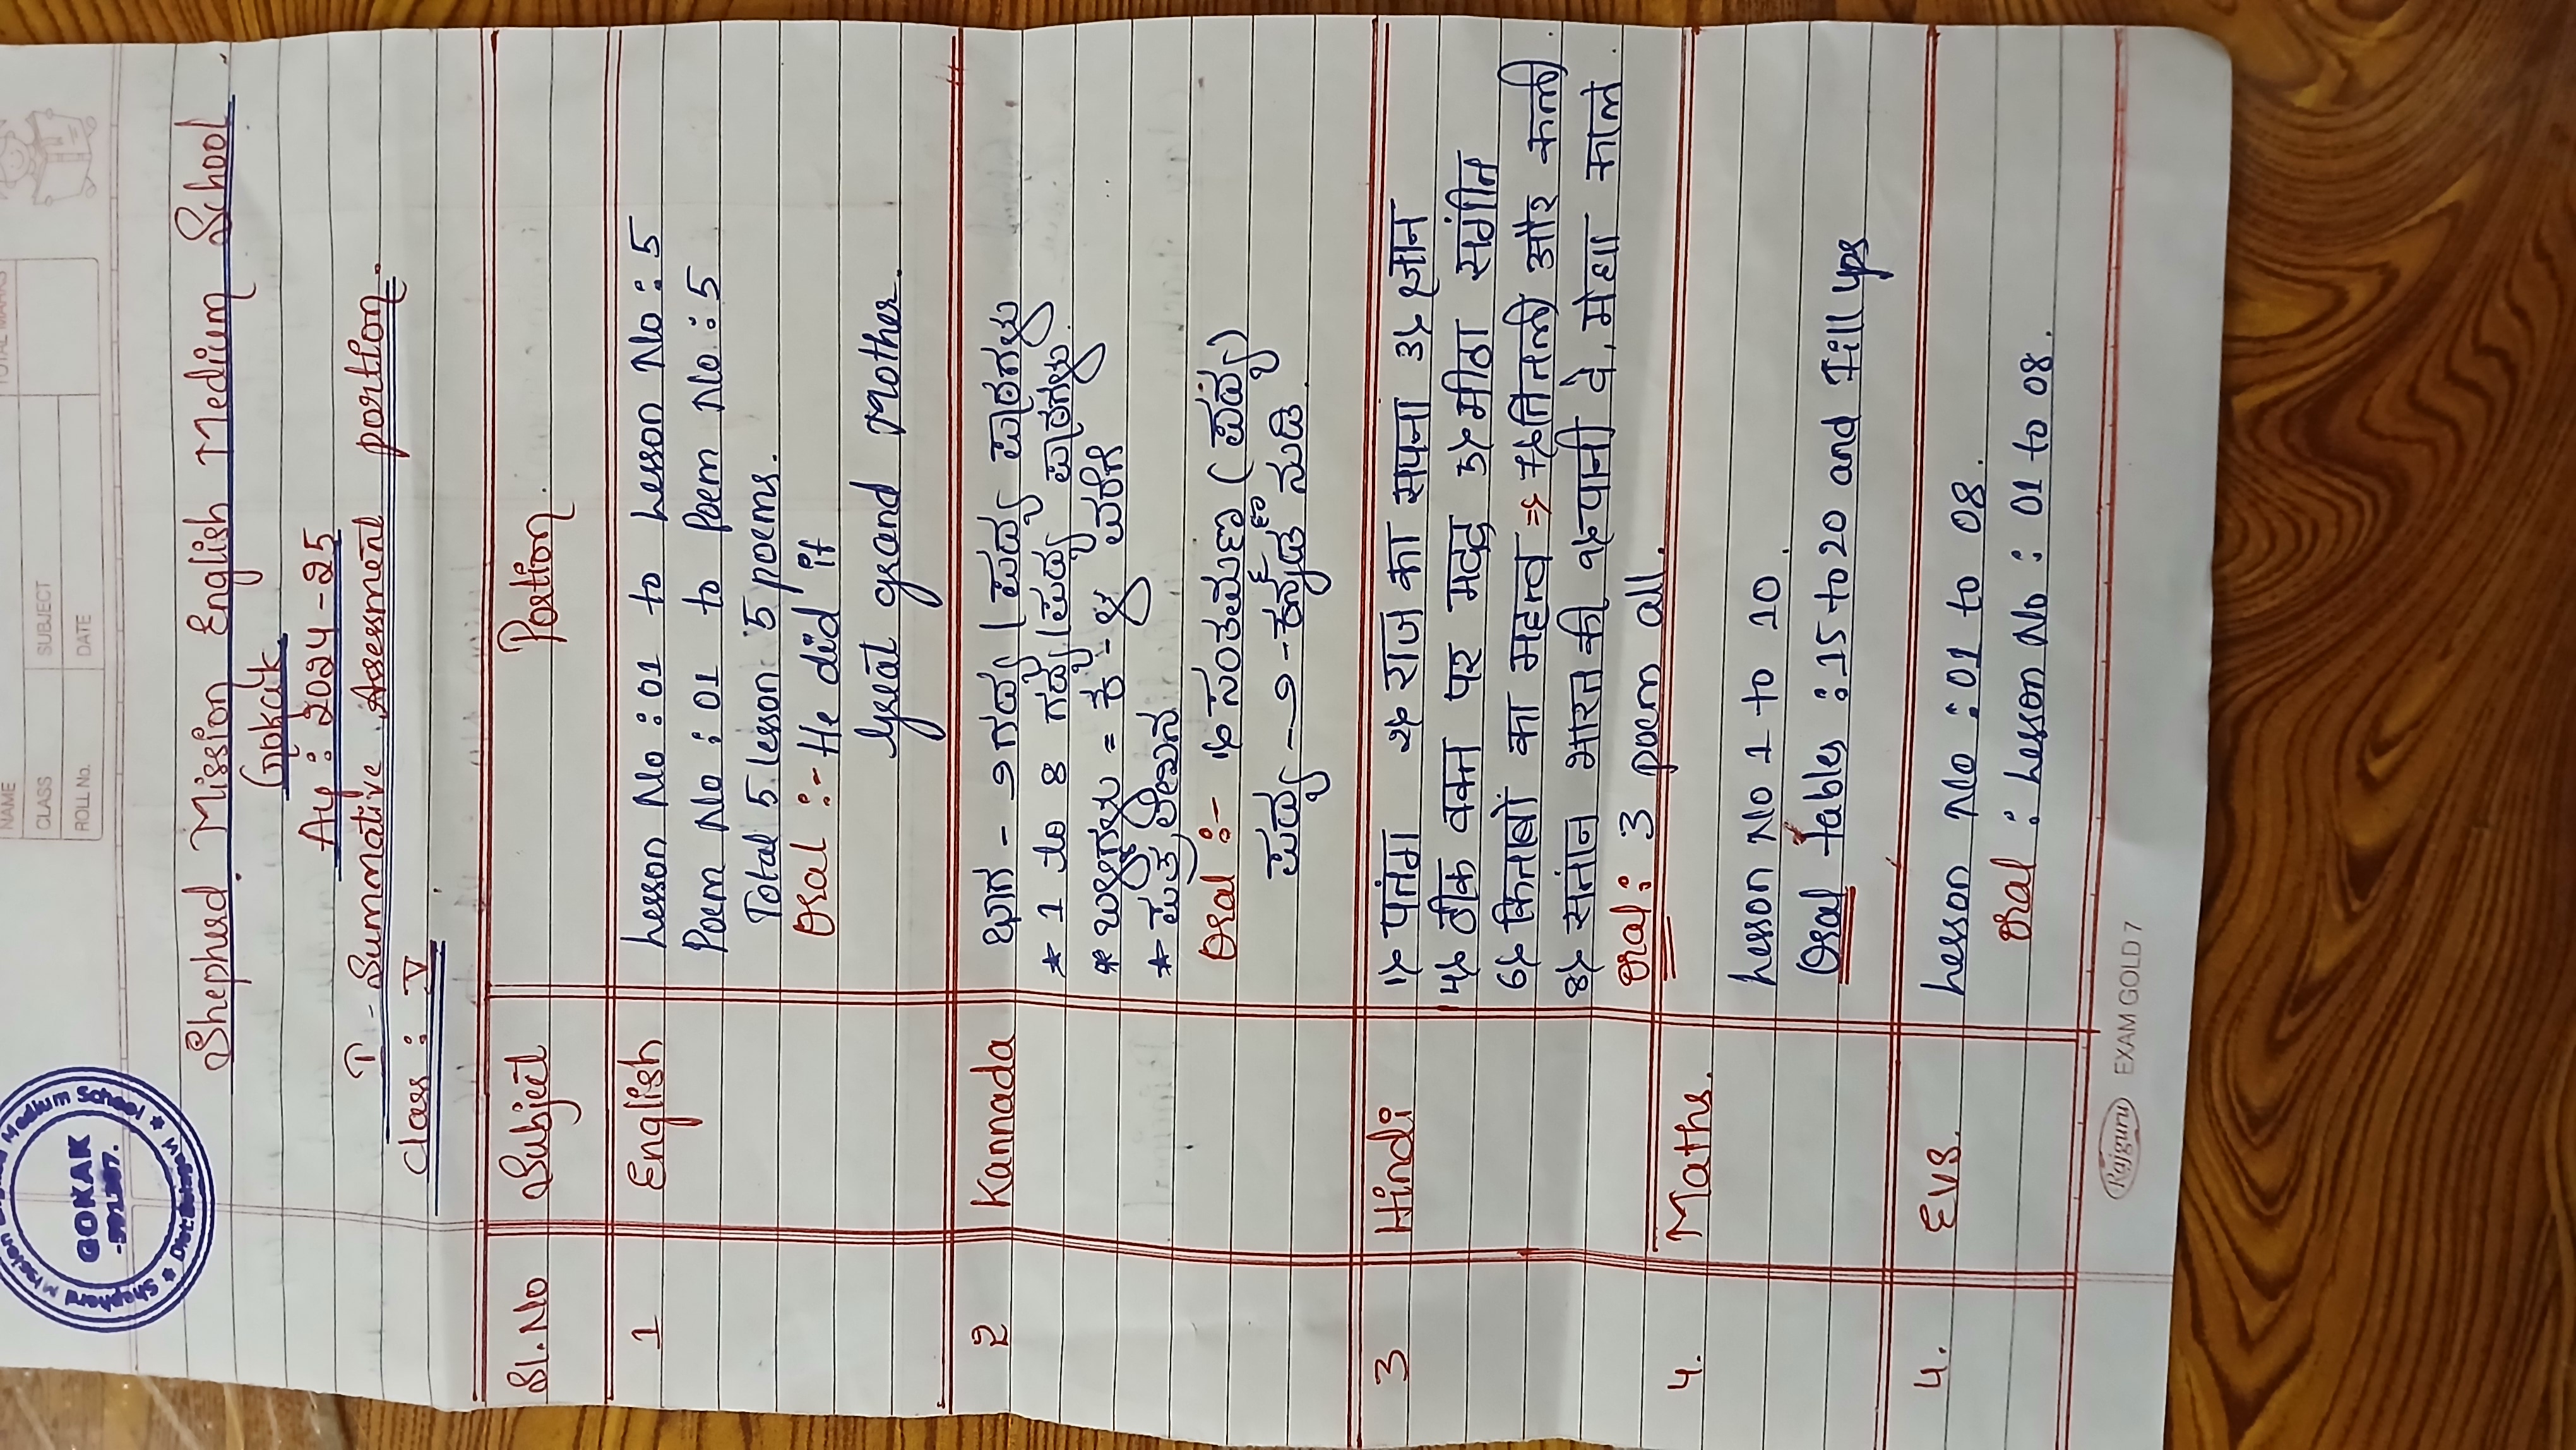 NAME
CLASS
SUBJECT
ROLL No.
DATE
TOTAL MARKS
GOKAK
Shepherd Mission English Medium School
Gokak
Ay : 2024-25
I - Summative Assessment portion.
Class : V
Sl.No Subject Portion
1 English Lesson No : 01 to Lesson No : 5
Poem No : 01 to Poem No : 5
Total 5 lesson 5 poems.
Oral :- He did it
Great grand Mother.
2 Kannada ಭಾಗ - ೨ ಗದ್ಯ / ಪದ್ಯ ಪಾಠಗಳು
* 1 to 8 ಗದ್ಯ / ಪದ್ಯ ಪಾಠಗಳು.
* ಒಗಟುಗಳು = ಕ - ಳ ವರೆಗೆ
* ಪತ್ರ ಲೇಖನ
Oral :- (ಪದ್ಯ)
ಪದ್ಯ - ೨ - ಕನ್ನಡ ನುಡಿ
3 Hindi 1) पतंग 2) राज का सपना 3) ज्ञान
4) ठीक वक्त पर मदद 5) मीठा संगीत
6) किताबों का महत्व ⇒ 7) तितली और कली.
8) संतान भारत की 9) पानी दे, मेघा काले.
Oral : 3 poem all.
4. Maths. Lesson No 1 to 10
Oral tables : 15 to 20 and Fill ups
4. EVS. Lesson No : 01 to 08.
Oral : Lesson No : 01 to 08.
Rajguru EXAM GOLD 7